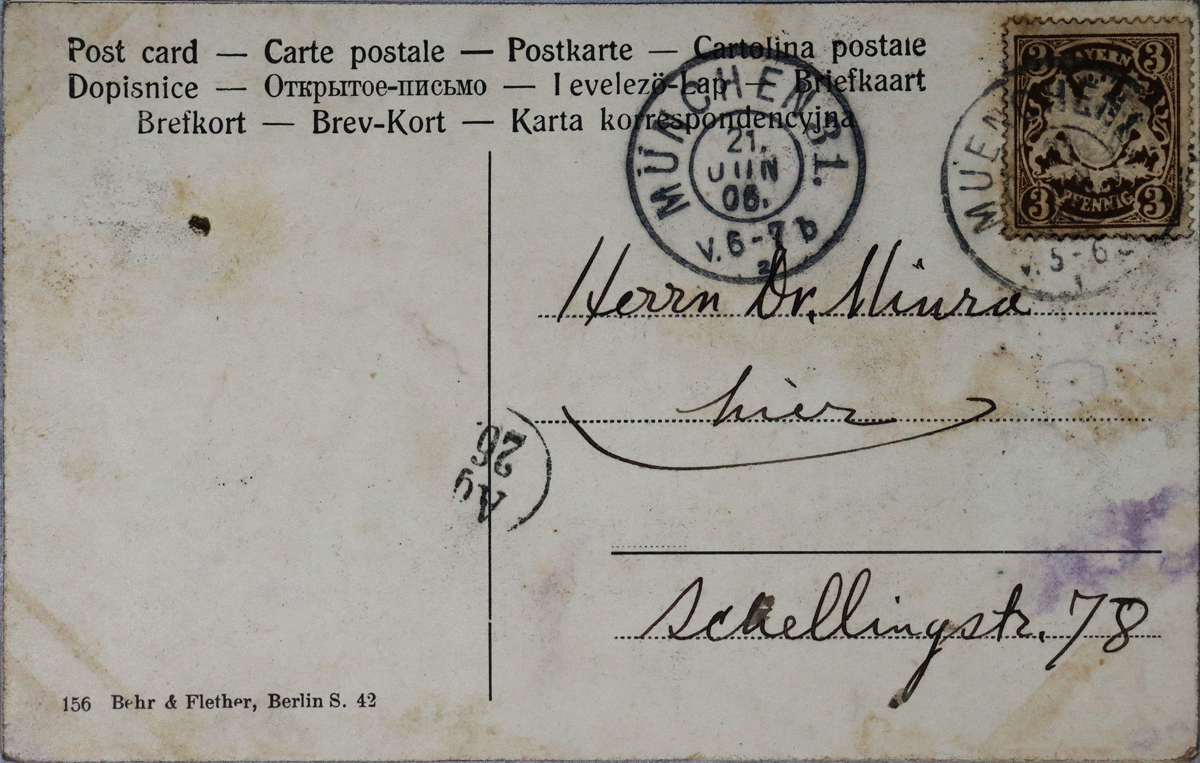 Post card — Carte postale — Postkarte — Cartolina postale
Dopisnice — Открытое-письмо — Levelező-Lap — Briefkaart
Brefkort — Brev-Kort — Karta korrespondencyjna
3 BAYERN 3
3 PFENNIG 3
MÜNCHEN 31.
21.
JUN
06.
V. 6-7 b
2
MUENCHEN
V. 5-6
1
Herrn Dr. Miura
hier
26
Schellingstr. 78
156 Behr & Flether, Berlin S. 42